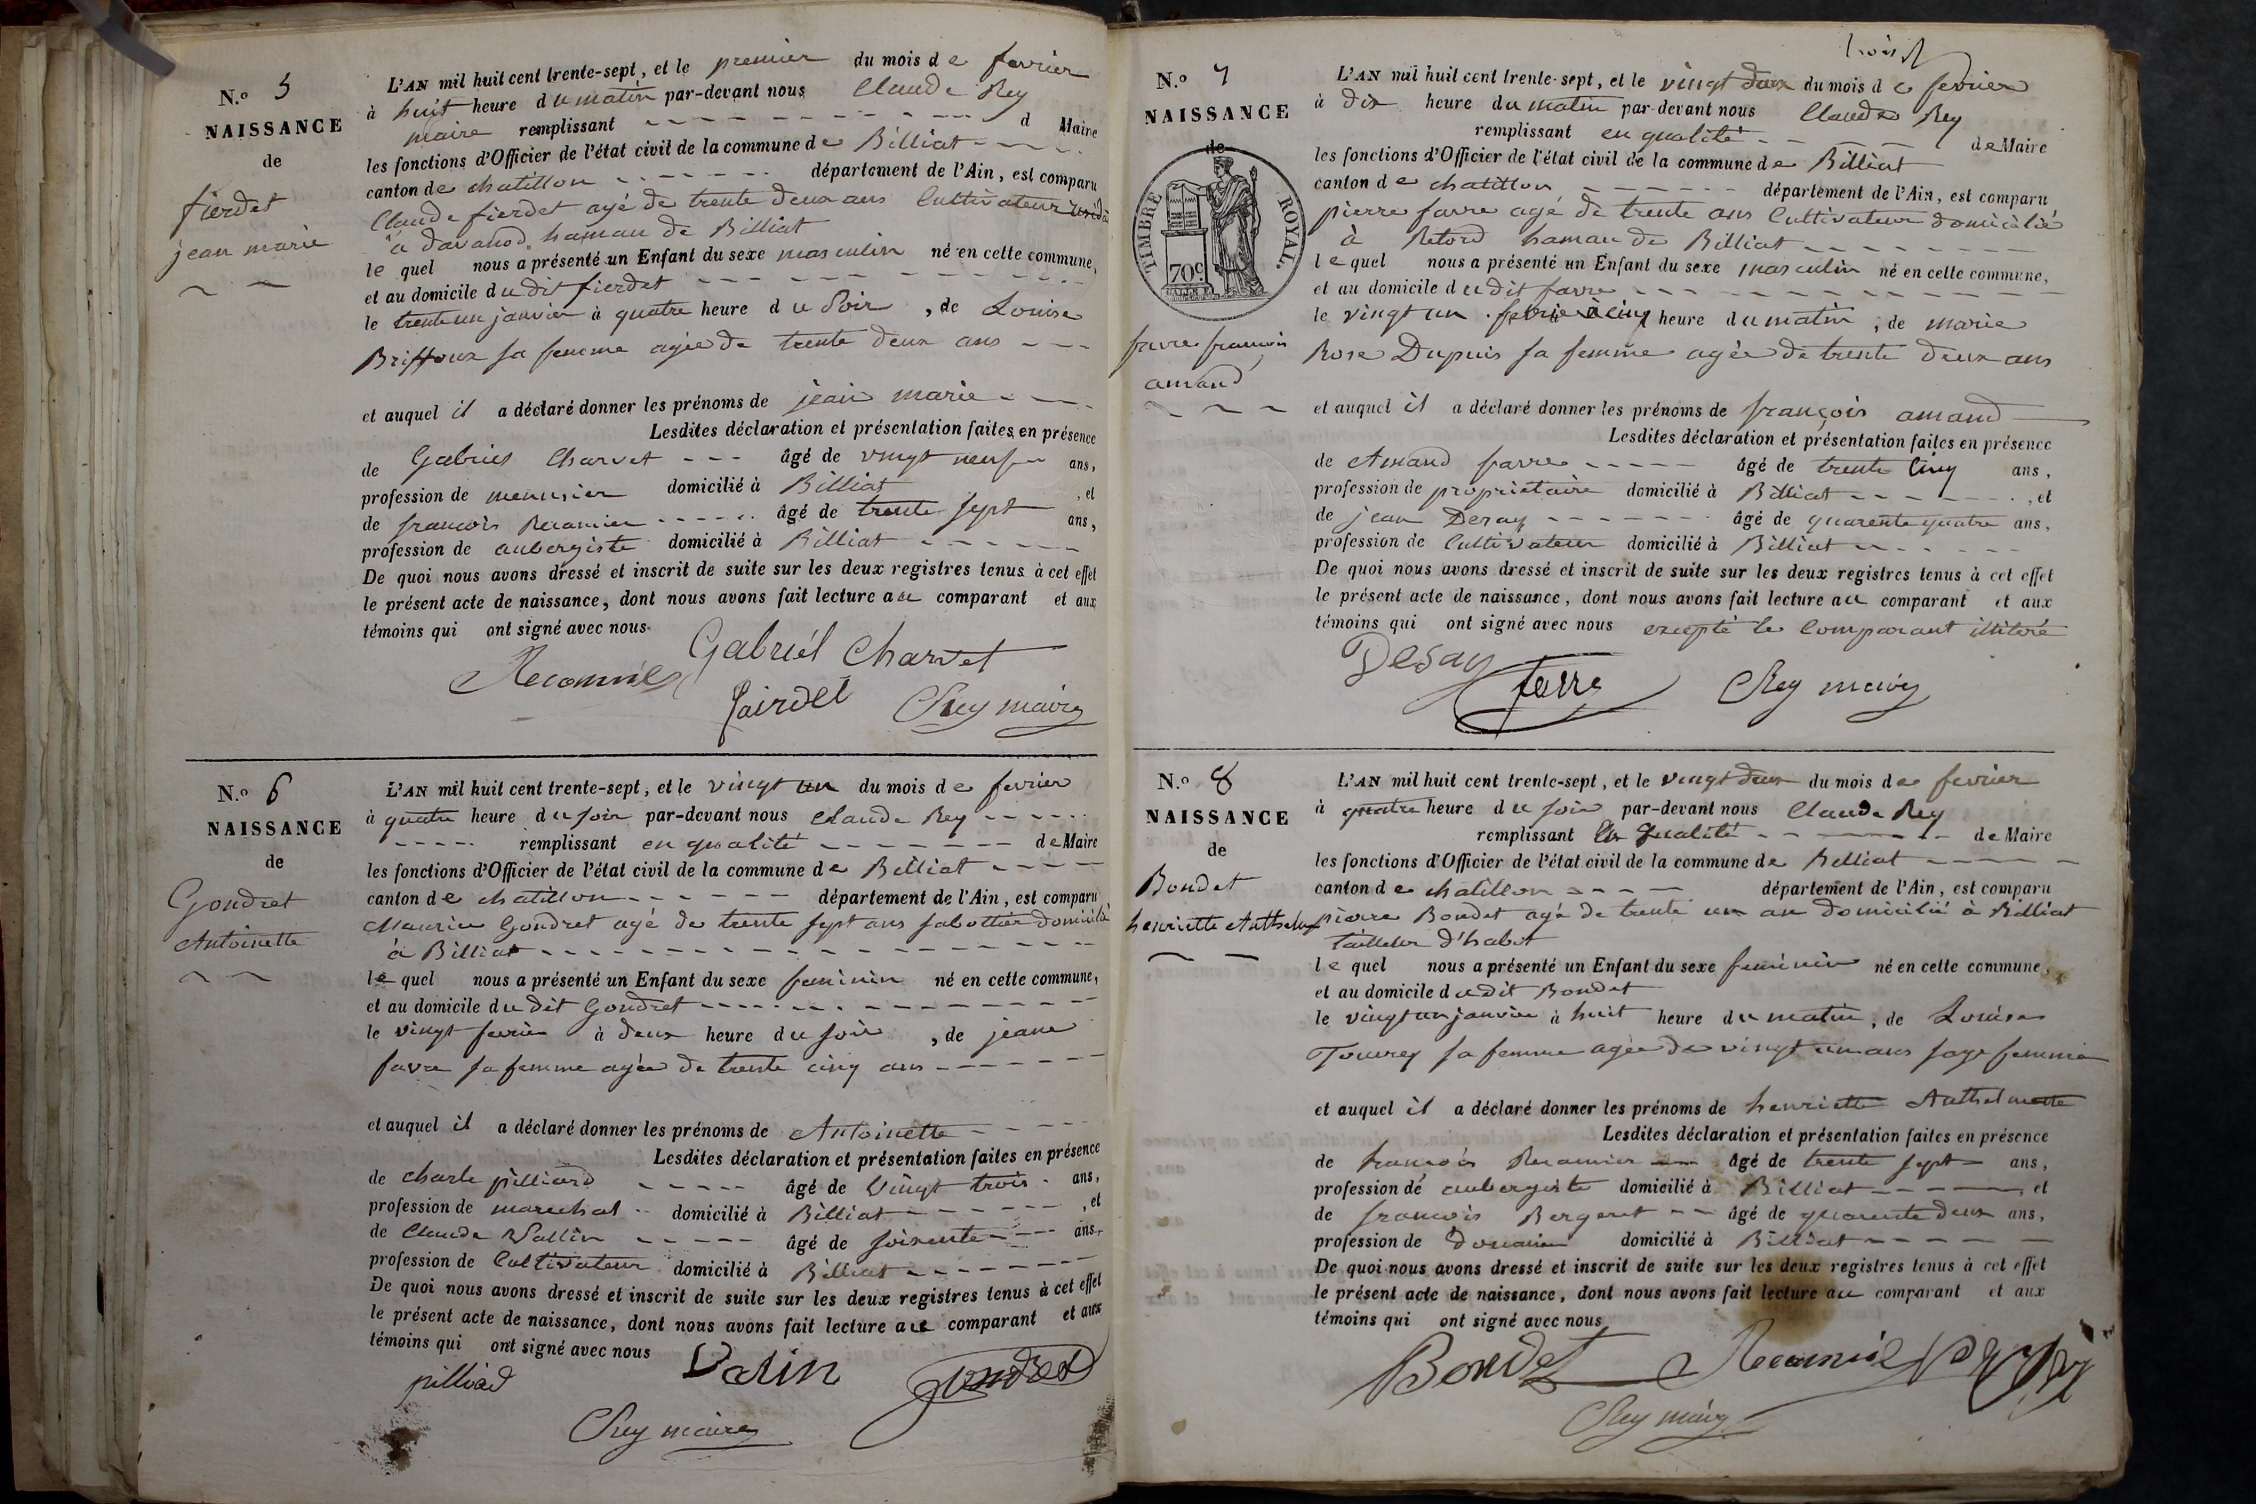 N.º 5
NAISSANCE
de
fierdet
jean marie
L'AN mil huit cent trente-sept, et le premier du mois de fevrier
à huit heure du matin par-devant nous Claude Rey
maire remplissant d Maire
les fonctions d'Officier de l'état civil de la commune de Billiat
canton de chatillon département de l'Ain, est comparu
Claude fierdet agé de trente deux ans Cultivateur
à davanod hamau de Billiat
le quel nous a présenté un Enfant du sexe masculin né en cette commune,
et au domicile du dit fierdet
le trente un janvier à quatre heure du Soir, de Louise
Briffoux sa femme agée de trente deux ans
et auquel il a déclaré donner les prénoms de jean marie
Lesdites déclaration et présentation faites en présence
de Gabriel Charvet âgé de vingt neuf ans,
profession de menusier domicilié à Billiat, et
de francois Recamier âgé de trente sept ans,
profession de aubergiste domicilié à Billiat
De quoi nous avons dressé et inscrit de suite sur les deux registres tenus à cet effet
le présent acte de naissance, dont nous avons fait lecture au comparant et aux
témoins qui ont signé avec nous.
Gabriél Charvet
Recamier
fairdet CRey maire
N.º 6
NAISSANCE
de
Gondret
Antoinette
L'AN mil huit cent trente-sept, et le vingt un du mois de fevrier
à quatre heure du soir par-devant nous Claude Rey
remplissant en qualité de Maire
les fonctions d'Officier de l'état civil de la commune de Billiat
canton de chatillon département de l'Ain, est comparu
Maurice Gondret agé de trente sept ans sabottier domicilié
à Billiat
le quel nous a présenté un Enfant du sexe feminin né en cette commune,
et au domicile du dit Gondret
le vingt fevrier à deux heure du soir, de jeane
favre sa femme agée de trente cinq ans
et auquel il a déclaré donner les prénoms de Antoinette
Lesdites déclaration et présentation faites en présence
de charle pilliard âgé de vingt trois ans,
profession de marechal domicilié à Billiat, et
de Claude Vallin âgé de soixente ans,
profession de Cultivateur domicilié à Billiat
De quoi nous avons dressé et inscrit de suite sur les deux registres tenus à cet effet
le présent acte de naissance, dont nous avons fait lecture au comparant et aux
témoins qui ont signé avec nous
pilliad Valin Gondret
CRey maire
trois
N.º 7
NAISSANCE
de
TIMBRE ROYAL.
70c
favre francois
amand
L'AN mil huit cent trente-sept, et le vingt deux du mois de fevrier
à dix heure du matin par-devant nous Claude Rey
remplissant en qualité de Maire
les fonctions d'Officier de l'état civil de la commune de Billiat
canton de chatillon département de l'Ain, est comparu
pierre favre agé de trente ans Cultivateur domicilié
à Retord hamau de Billiat
le quel nous a présenté un Enfant du sexe masculin né en cette commune,
et au domicile du dit favre
le vingt un fevrier à cinq heure du matin, de marie
Rose Dupuis sa femme agée de trente deux ans
et auquel il a déclaré donner les prénoms de françois amand
Lesdites déclaration et présentation faites en présence
de Amand favre âgé de trente cinq ans,
profession de propriétaire domicilié à Billiat, et
de jean Deray âgé de quarente quatre ans,
profession de Cultivateur domicilié à Billiat
De quoi nous avons dressé et inscrit de suite sur les deux registres tenus à cet effet
le présent acte de naissance, dont nous avons fait lecture au comparant et aux
témoins qui ont signé avec nous excepté le Comparant illitéré
Desay favre CRey maire
N.º 8
NAISSANCE
de
Bondet
henriette
L'AN mil huit cent trente-sept, et le vingt deux du mois de fevrier
à quatre heure du soir par-devant nous Claude Rey
remplissant en qualité de Maire
les fonctions d'Officier de l'état civil de la commune de Billiat
canton de chatillon département de l'Ain, est comparu
pierre Bondet agé de trente un an domicilié à Billiat
tailleur d'habit
le quel nous a présenté un Enfant du sexe feminin né en cette commune,
et au domicile du dit Bondet
le vingt un janvier à huit heure du matin, de Louise
Tourney sa femme agée de vingt un ans sage femme
et auquel il a déclaré donner les prénoms de henriette Anthelmette
Lesdites déclaration et présentation faites en présence
de francois Recamier âgé de trente sept ans,
profession de aubergiste domicilié à Billiat, et
de francois Bergeret âgé de quarente deux ans,
profession de douanier domicilié à Billiat
De quoi nous avons dressé et inscrit de suite sur les deux registres tenus à cet effet
le présent acte de naissance, dont nous avons fait lecture au comparant et aux
témoins qui ont signé avec nous
Bondet Recamier
CRey maire